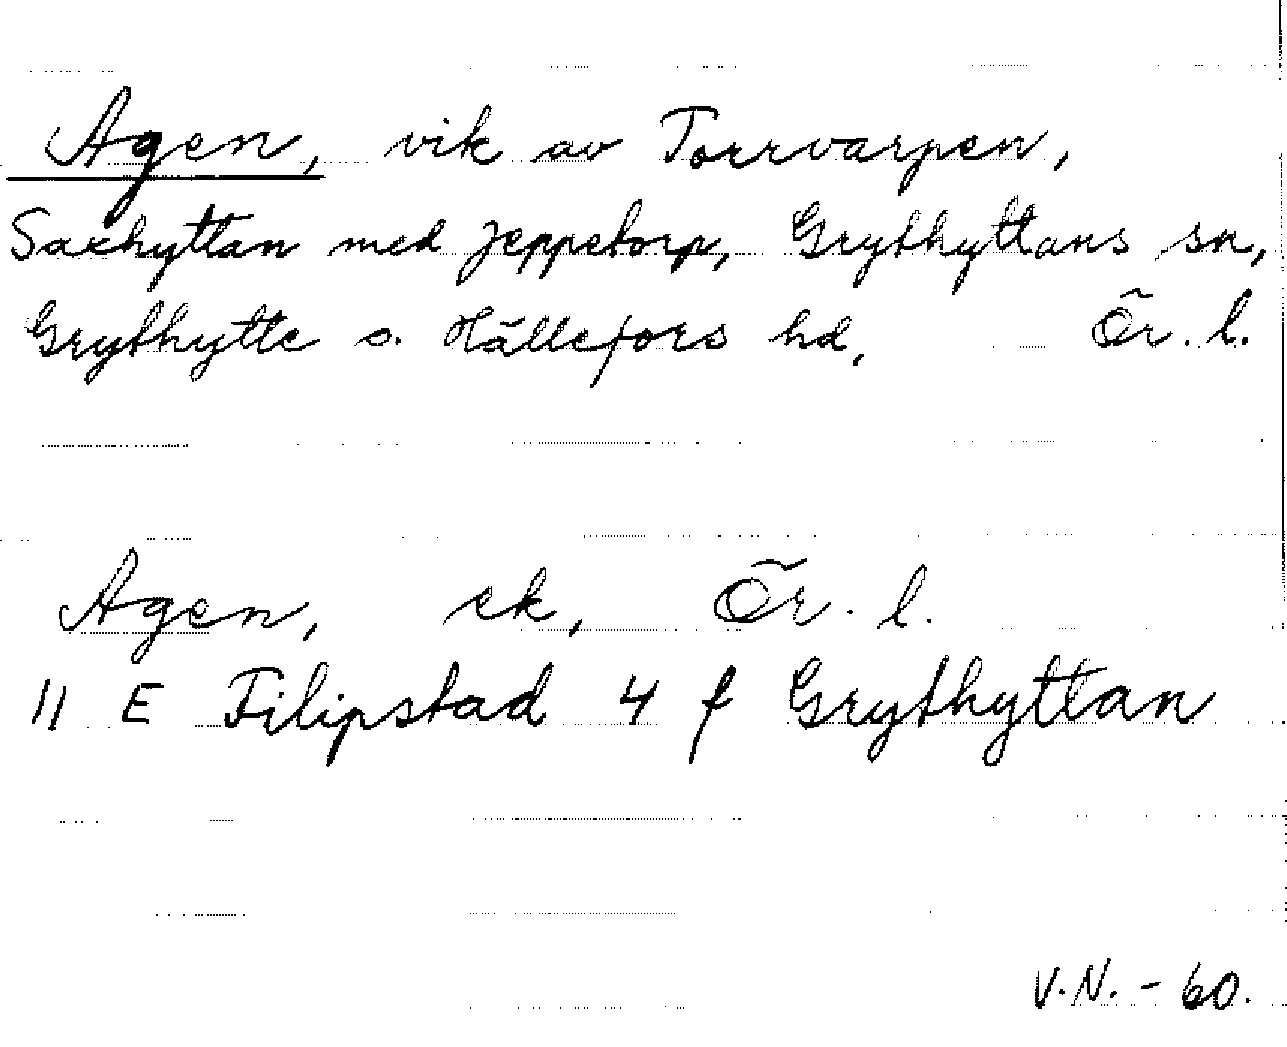 Agen, vik av Torrvarpen,
Saxhyttan med Jeppetorp, Grythyttans sn,
Grythytte o. Hällefors hd, Ör. l.
Agen, ek, Ör. l.
11 E Filipstad 4 f Grythyttan
V.N. - 60.